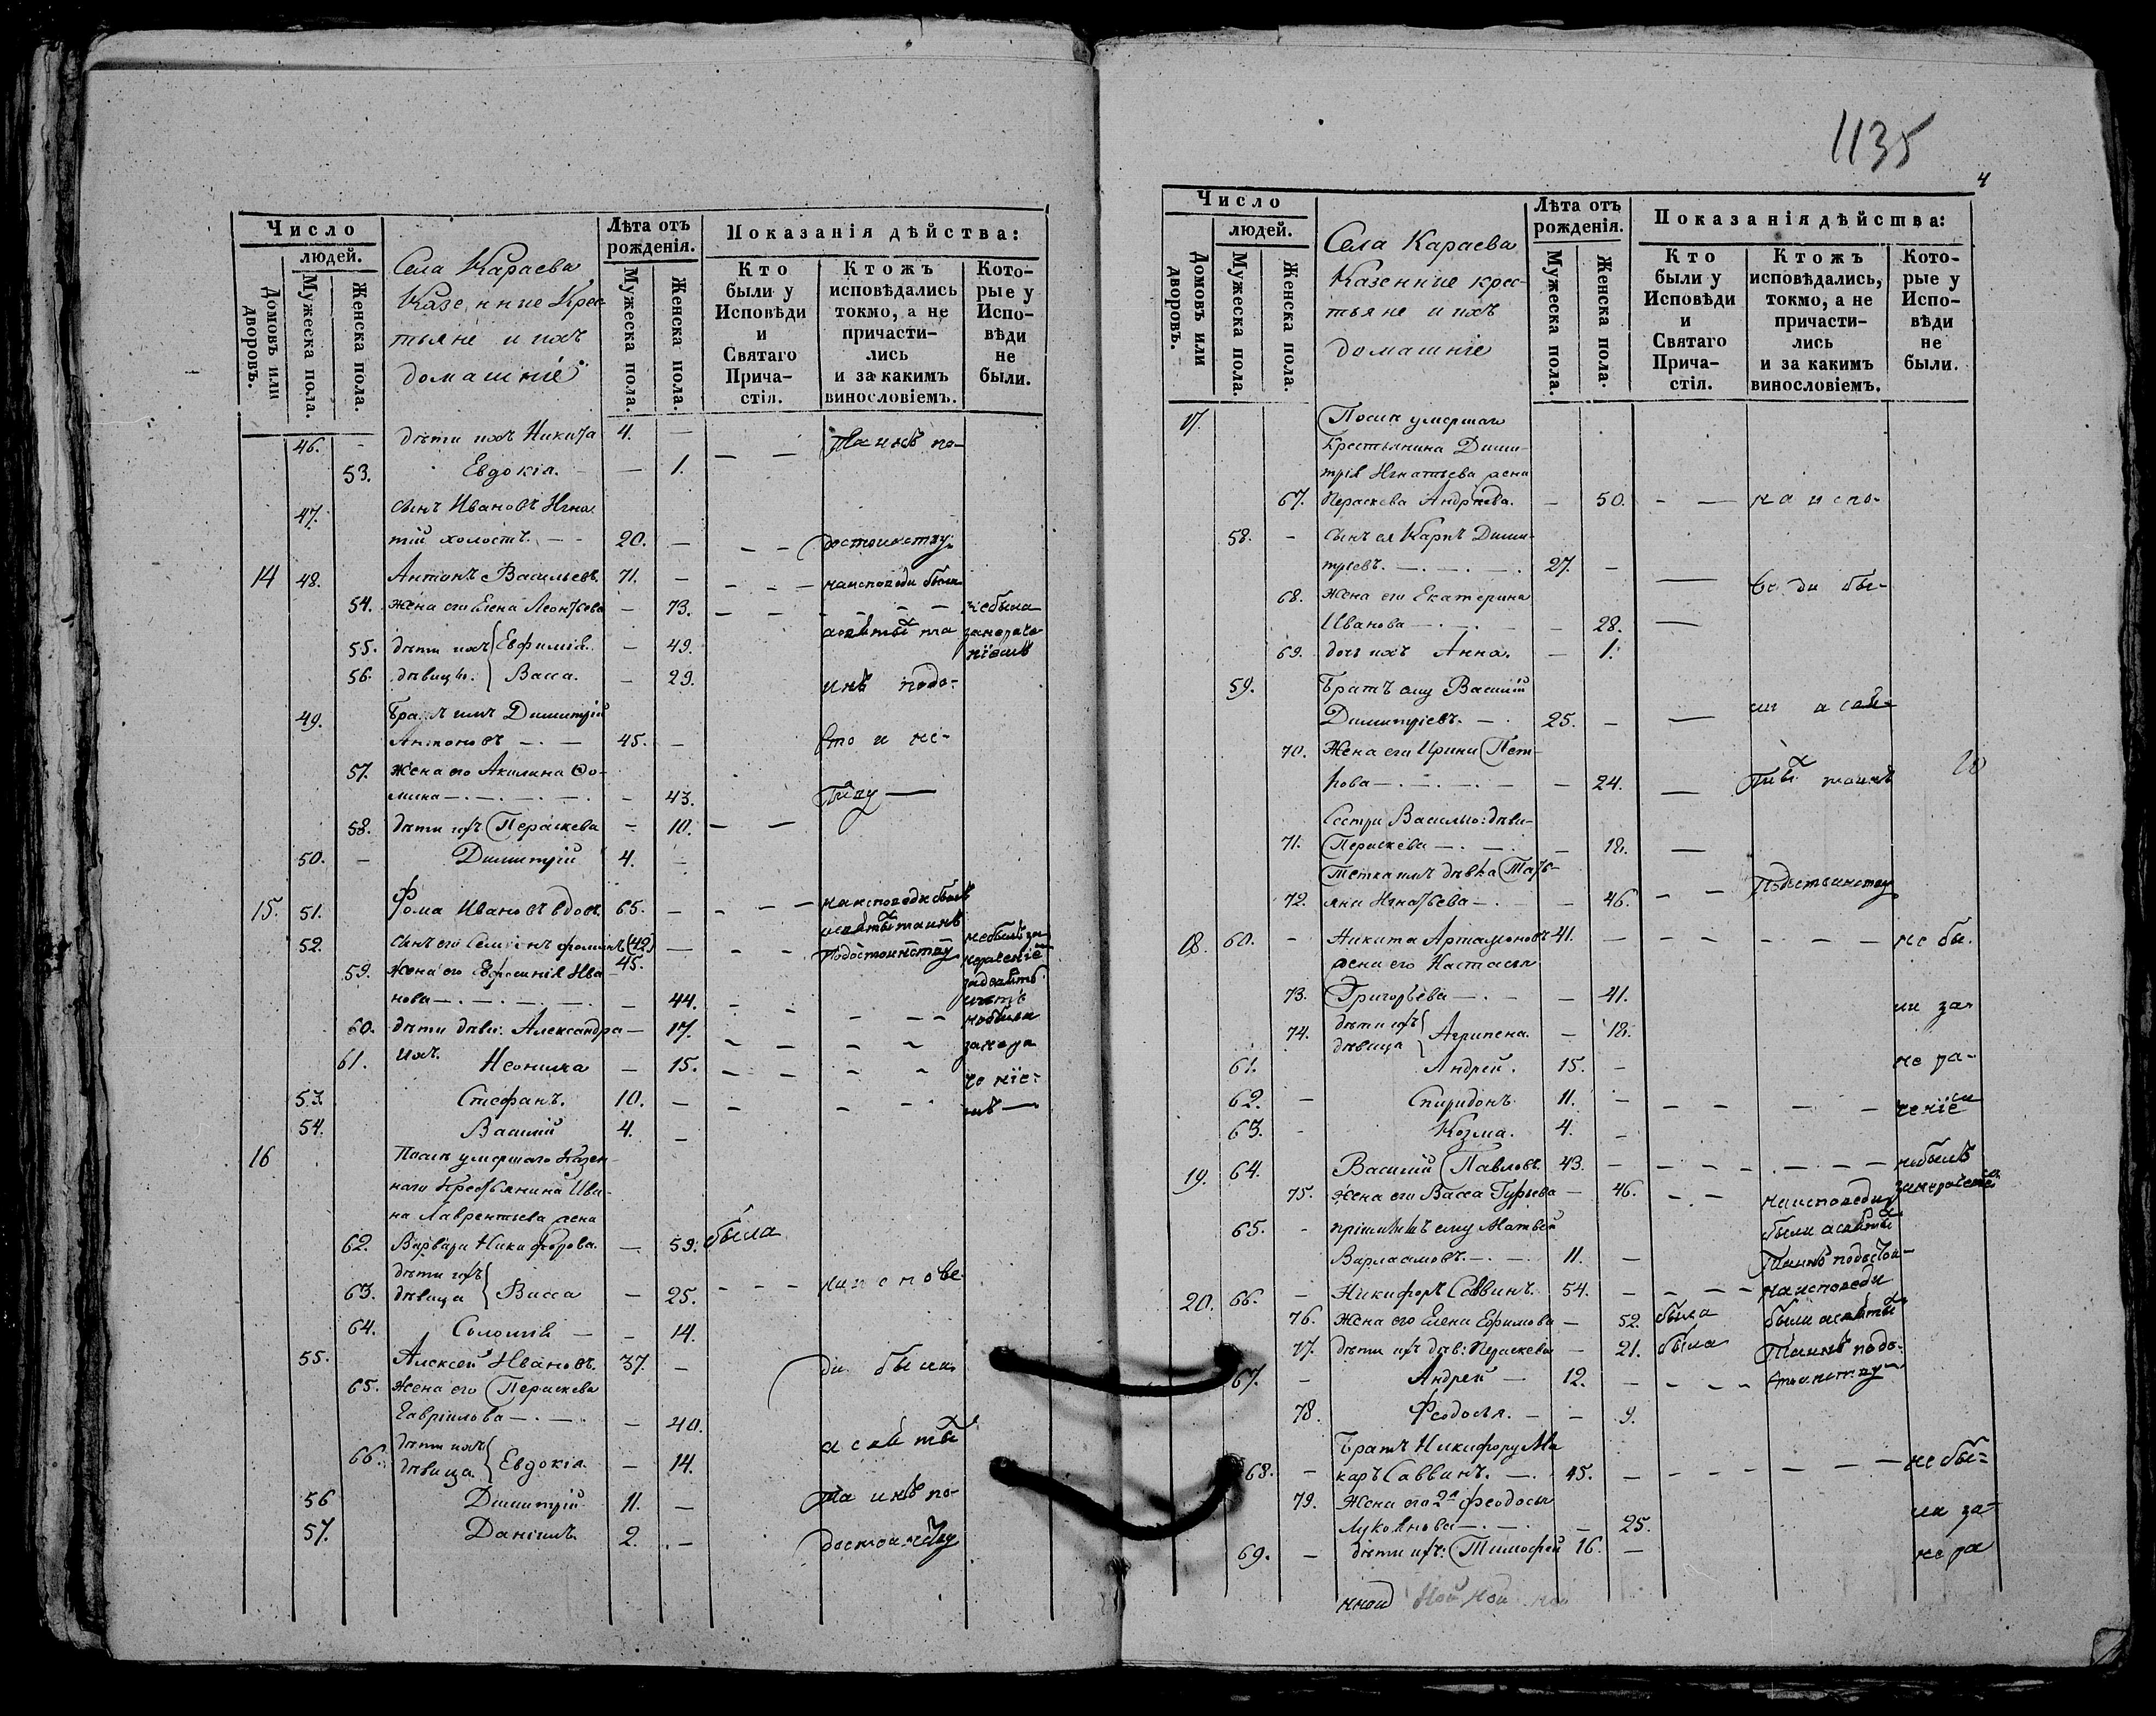 Число
людей.
Домовъ или дворовъ.
Мужеска пола.
Женска пола.
Села Караева
Казенные Крес-
тьяне и ихъ
домашніе
Лѣта отъ
рожденія.
Мужеска пола.
Женска пола.
Показанія дѣйства:
Кто
были у
Исповѣди
и
Святаго
Прича-
стія.
Ктожъ
исповѣдались
токмо, а не
причасти-
лись
и за какимъ
винословіемъ.
Кото-
рые у
Испо-
вѣди
не
были.
46. - дѣти ихъ Никита 4. — — — Таинъ по-
53. Евдокія. — 1.
47. сынъ Ивановъ Игна
тій холостъ. — 20. — — — достоинству.
14 48. Антонъ Васильевъ. 71. — — — наисповеди были
54. жена его Елена Леонтьева — 73. — — — — небыла
асвятыхъ та занераче
55. дѣти ихъ Евфимія. — 49. ніемъ
56. дѣвицы. Васса. — 29. инъ подо-
49. братъ имъ Димитрій
Антоновъ — 45. — сто и нс-
57. жена его Акилина Ѳо-
мина — 43. тву —
58. дѣти ихъ Пераскева — 10. — —
50. — Димитрій 4. —
15. 51. Фома Ивановъ вдовъ. 65. — — — наисповеди былъ
асвятыхъ таинъ
52. сынъ его Семіонъ Фоминъ (42) — — — Подостоинству небылъ за
45. нераченіе
59. жена его Ефросинія Ива
нова — 44.
60. дѣти дѣви: Александра — 17. — — — — небыли
61. ихъ. Неонила — 15. — — — — занера
53. Стефанъ. 10. — — — — ченіе-
54. Василій 4. — мъ —
16 Послѣ умершаго Казен-
наго Крестьянина Ива-
на Лаврентьева жена
62. Варвара Никифорова. — 59. была
63. дѣти ихъ
дѣвица Васса — 25. — — — наиспове
64. Соломія — — 14.
55. Алексей Ивановъ. 37. — ди были
65. Жена его Пераскева
Гавріилова — 40.
66. дѣти ихъ
дѣвица Евдокія — 14. а святыхъ
56 Димитрій 11. — Та инъ по-
57. Даніилъ 2. — достоинству
1135
4
Число
людей.
Домовъ или дворовъ.
Мужеска пола.
Женска пола.
Села Караева
Казенные крес-
тьяне и ихъ
домашніе
Лѣта отъ
рожденія.
Мужеска пола.
Женска пола.
Показанія дѣйства:
Кто
были у
Исповѣди
и
Святаго
Прича-
стія.
Ктожъ
исповѣдались,
токмо, а не
причасти-
лись
и за какимъ
винословіемъ.
Кото-
рые у
Испо-
вѣди
не
были.
17. Послѣ умершаго
Крестьянина Дими-
трія Игнатьева жена
67. Пераскева Андрѣева. — 50. — — на испо-
58. — сынъ ея Карпъ Дими-
тріевъ. — 27. —
68. жена его Екатерина — ве ди бы-
Иванова — 28. —
69. дочь ихъ Анна. — 1.
59. братъ ему Василій
Димитріевъ. — 25. — — ли а свя-
70. Жена его Ирина Пет-
рова — 24. — тыхъ таинъ
Сестра Василью: дѣви-
71. Пераскева — — 18. —
Тетка имъ дѣвка Татъ-
72. яна Игнатьева — — 46. — — Подостоинству
18. 60. — Никита Артамоновъ 41. — — — — не бы.
жена его Настасья
73. Григорьева — — 41. ли за-
74. дѣти ихъ
дѣвица Агрипена. — 18.
61. Андрей. 15. — не ра-
62. — Спиридонъ. 11. — — — — — ченіемъ
63. — Козма. 4. —
19. 64. Василій Павловъ. 43. — — — — — небылъ
75. Жена его Васса Гурьева — 46. — — наисповеди занераченіемъ
65. — пріимышъ ему Матвей были асвятыхъ
Варлаамовъ. — 11. — Таинъ подостои-
20. 66. — Никифоръ Саввинъ. 54. — — — — наисповеди
76. Жена его Елена Ефимова — 52 была были асвятыхъ
77. дѣти ихъ дѣв: Пераскева — 21. была Таинъ подо-
67. — Андрей — 12. — — — — стоинству
78. Феодосья. — — 9.
братъ Никифору Ма
68. — каръ Саввинъ. — 45. — — — — — не бы=
79. Жена его 2я феодосья
Лукоянова — — 25. ли за-
69. — дѣти ихъ: Тимофей 16. — не ра
нной ной ной ной